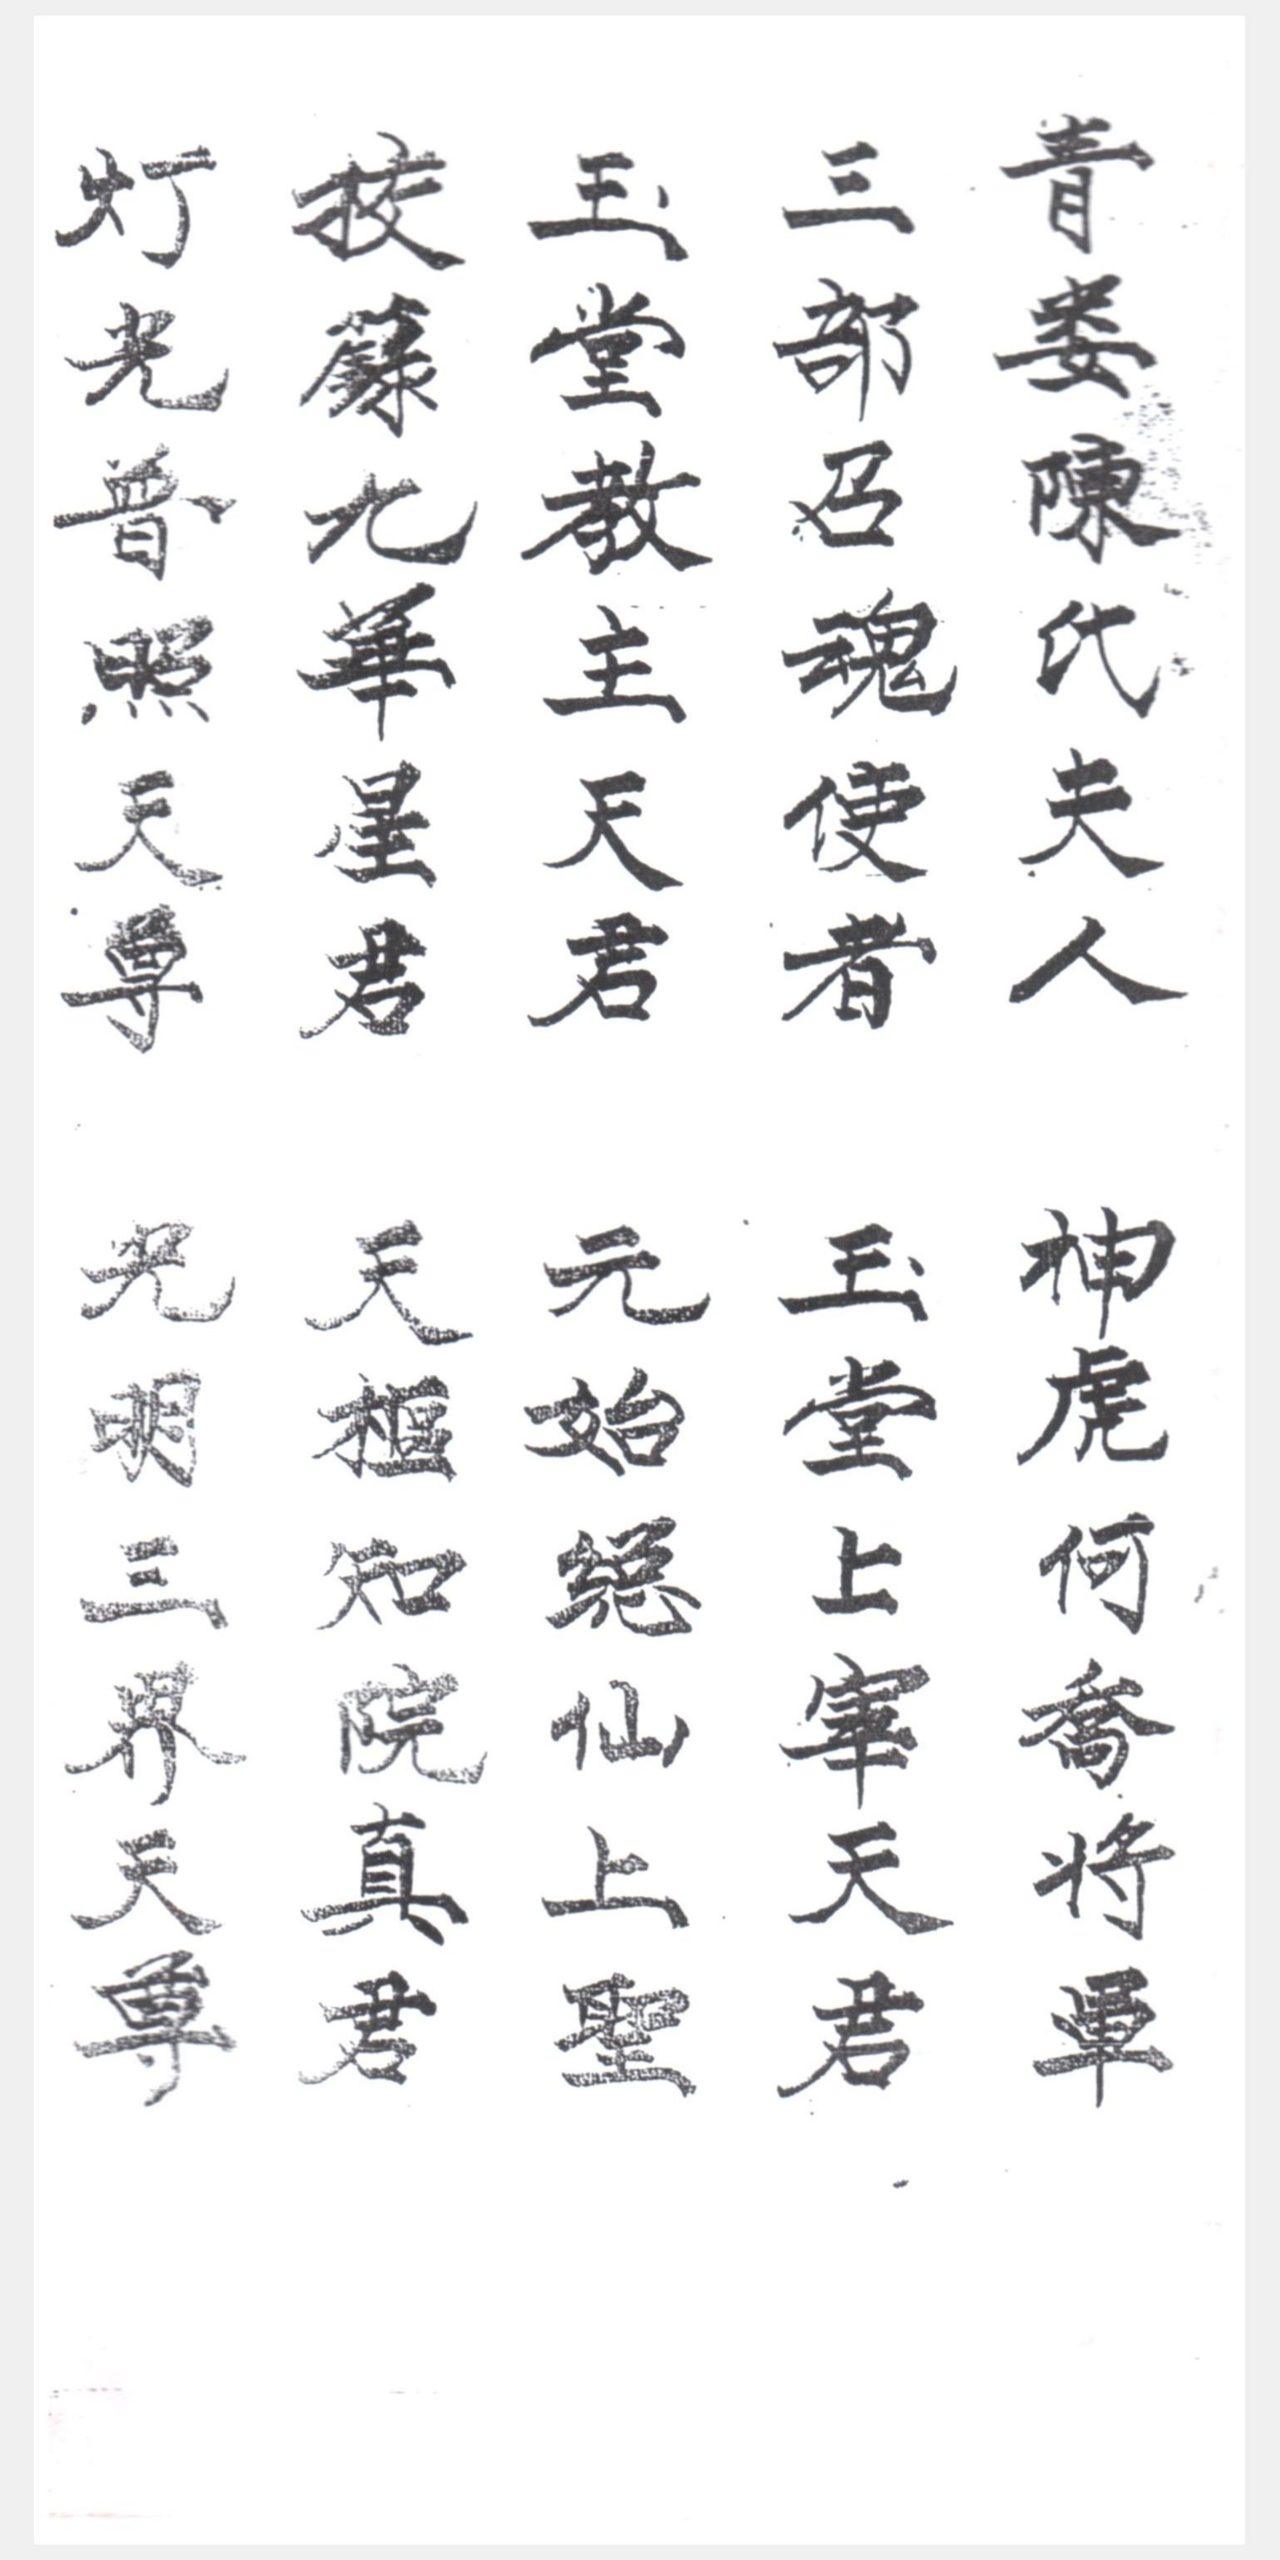 青娄陳代夫人
神虎何喬将軍
三部召魂使者
玉堂上宰天君
玉堂教主天君
元始總仙上聖
挍籙九華星君
天樞知院真君
灯光普照天尊
光明三界天尊